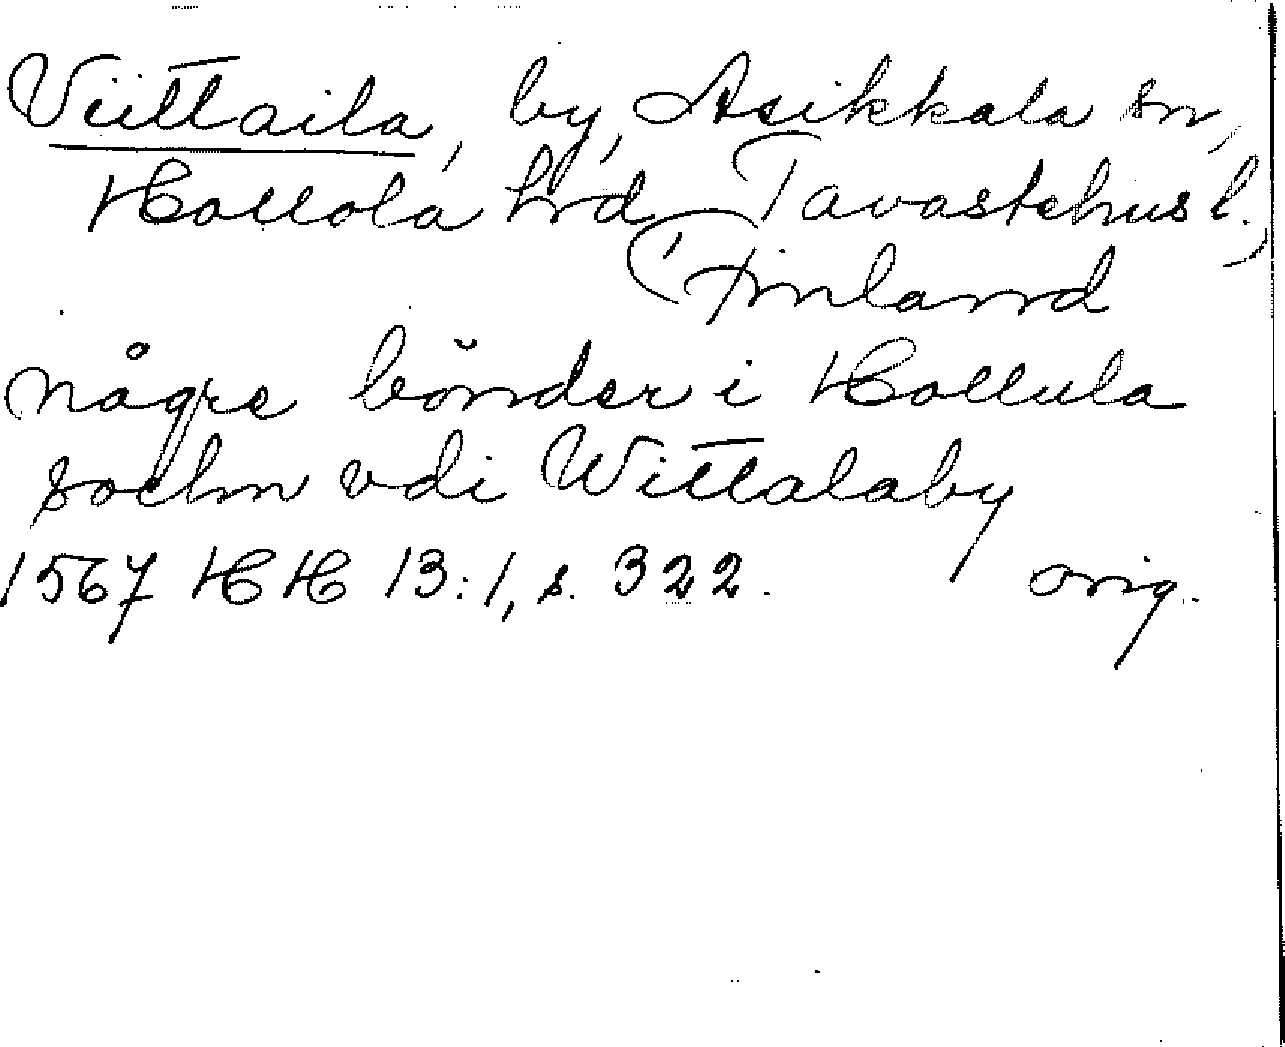 Viittaila, by, Asikkala sn,
Hollola hrd, Tavastehus l.,
Finland
någre bönder i Hollula
sochn vdi Wittalaby
1567 HH 13:1, s. 322. orig.